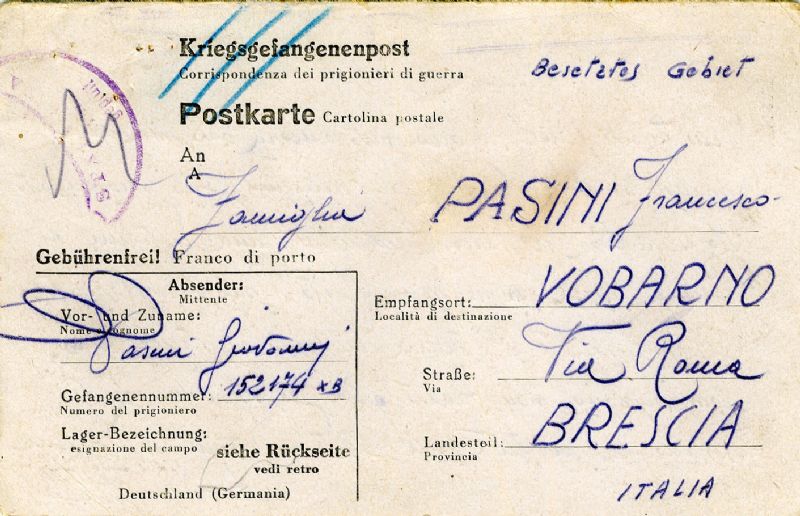 Kriegsgefangenenpost
Corrispondenza dei prigionieri di guerra
Besetztes Gebiet
Postkarte Cartolina postale
An
A
Famiglia PASINI Francesco
Gebührenfrei! Franco di porto
Absender:
Mittente
Vor- und Zuname:
Nome e cognome
Pasini Giovanni
Gefangenennummer: 152174 XB
Numero del prigioniero
Lager-Bezeichnung:
esignazione del campo
siehe Rückseite
vedi retro
Deutschland (Germania)
Empfangsort: VOBARNO
Località di destinazione
Straße: Via Roma
Via
Landesteil: BRESCIA
Provincia
ITALIA